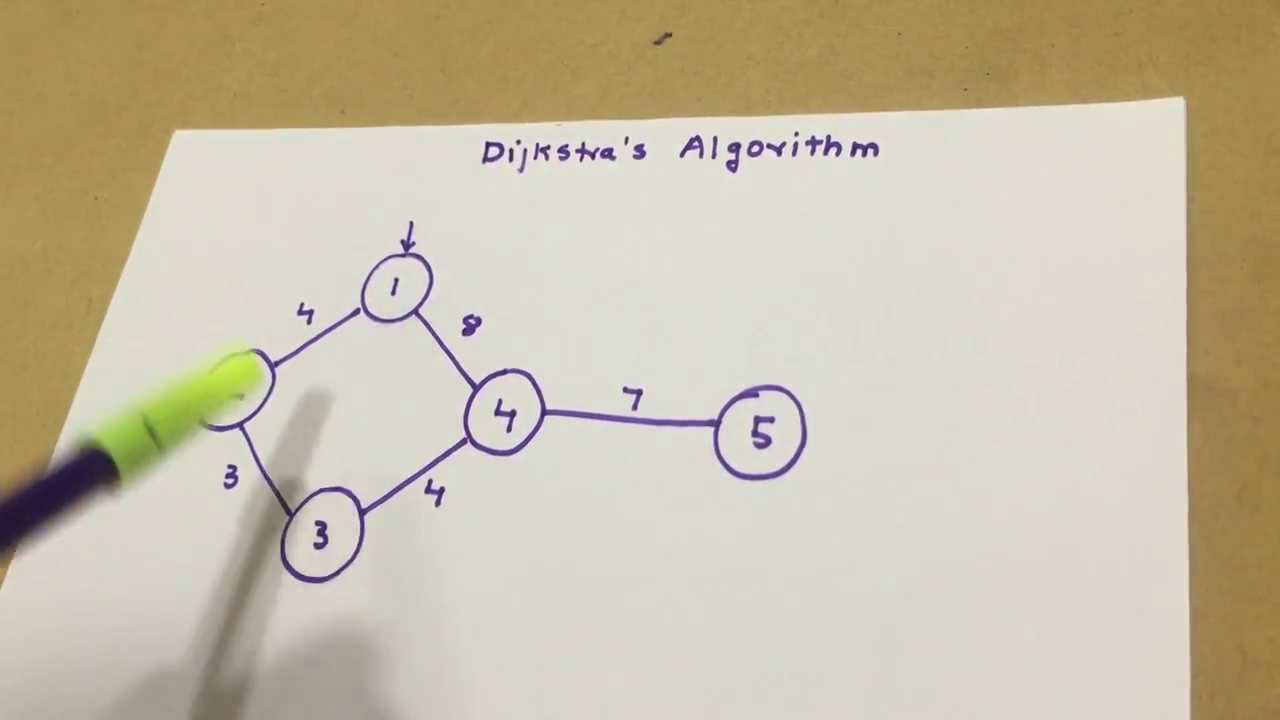 Dijkstra's Algorithm
1
4
8
4
7
5
3
4
3